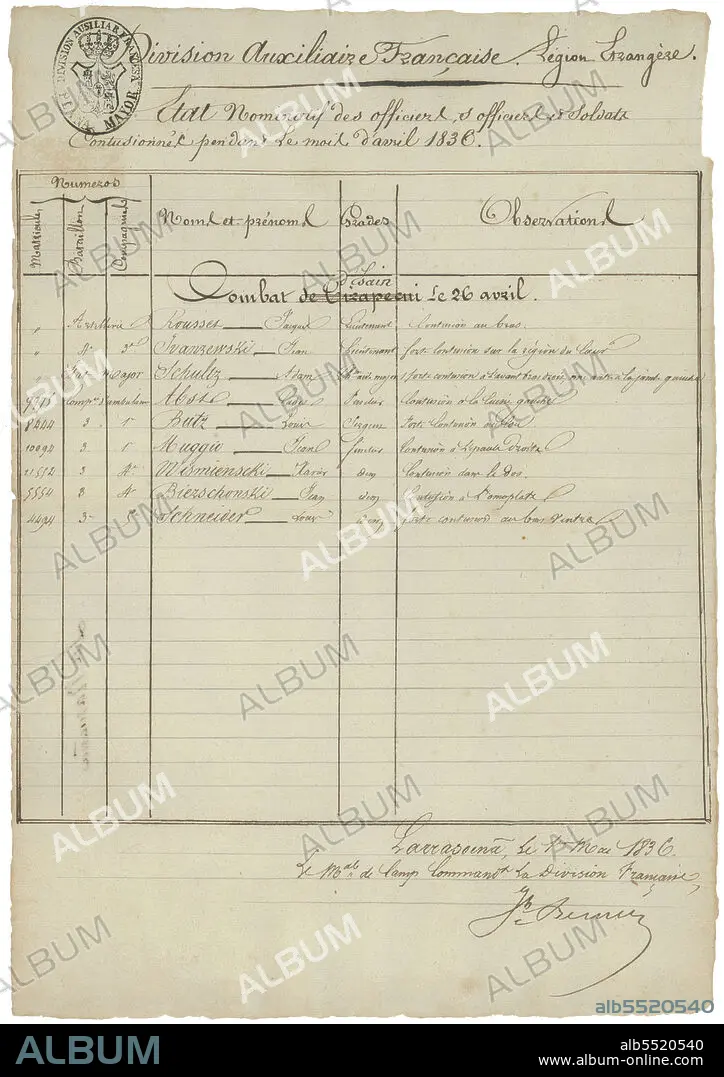 DIVISION AUSILIAR FRANCESA
PLANA MAIOR
Division Auxiliaire Française. Légion Etrangère.
Etat Nominatif des officiers, s officiers et Soldats
Contusionnés pendant le mois d'avril 1836.
Numeros
Matricule
Bataillon
Compagnies
Noms et prénoms
Grades
Observations
d'isain
Combat de Tirapegui le 26 avril.
" Artillerie Rousset Lieutenant Contusion au bras
" 4e 3e Ivanzewski Jean Lieutenant forte contusion sur la région du Cœur
" Major Schultz Adam forte contusion à l'avant bras droit, à la jambe gauche
Abot contusion à la cuisse gauche
8444 3. 1e Butz Louis Sergent forte contusion
10094 3. 1e Muggii Jean fusilier contusion à l'épaule droite
11552 3 4e Wismienscki Xavier idem Contusion dans le dos.
5554 3 4e Bierschonski Jean idem Contusion à l'omoplate
4494 3e Schneider Louis idem forte contusion au bas Ventre
Larrasoena, le 1er Mai 1836.
Le Mal de Camp Commandt la Division Française
ALBUM
alb5520540
ALBUM
alb5520540
www.album-online.com